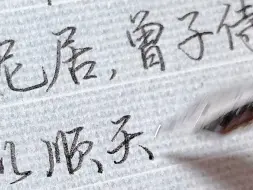 尼居,曾子侍
以顺天